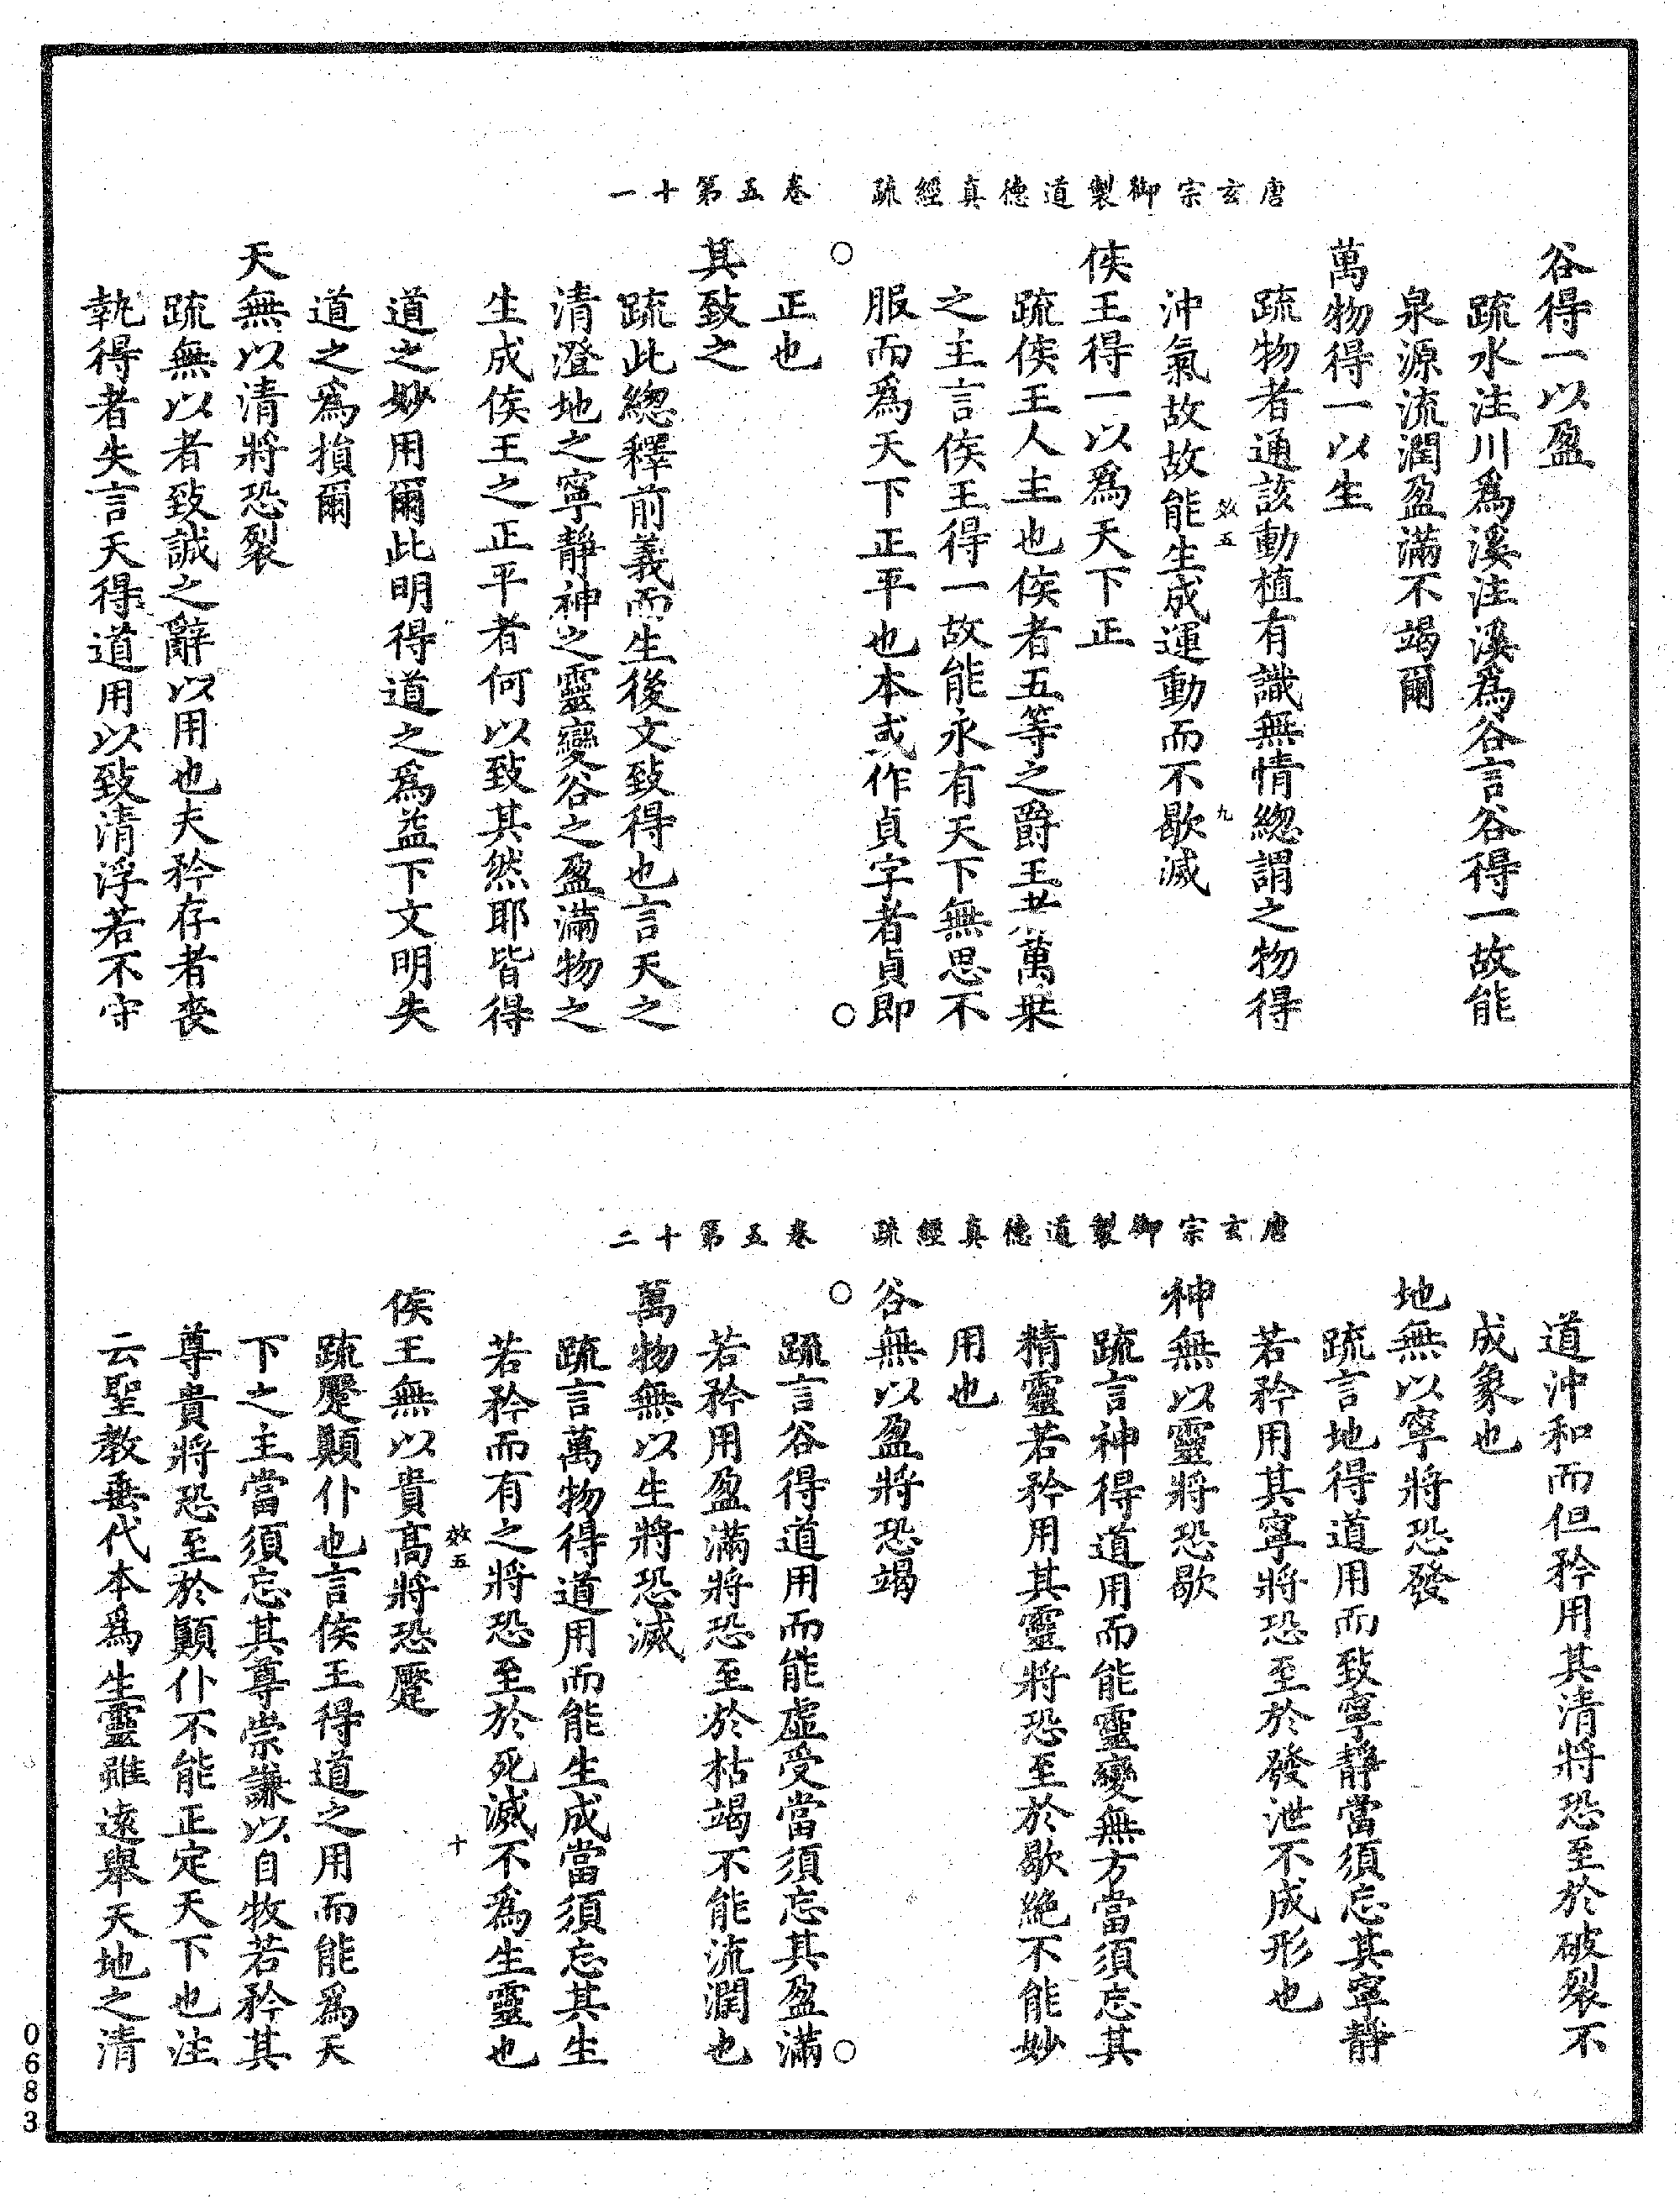 唐玄宗御製道德真經疏　卷五第十一
谷得一以盈
疏水注川爲溪注溪爲谷言谷得一故能
泉源流潤盈滿不竭爾
萬物得一以生
疏物者通該動植有識無情緫謂之物得
效五　九
沖氣故故能生成運動而不歇滅
侯王得一以爲天下正
疏侯王人主也侯者五等之爵王者萬椉
之主言侯王得一故能永有天下無思不
服而爲天下正平也本或作貞字者貞即
○　○
正也
其致之
疏此緫釋前義而生後文致得也言天之
清澄地之寧靜神之靈變谷之盈滿物之
生成侯王之正平者何以致其然耶皆得
道之妙用爾此明得道之爲益下文明失
道之爲損爾
天無以清將恐裂
疏無以者致誠之辭以用也夫矜存者喪
執得者失言天得道用以致清浮若不守
唐玄宗御製道德真經疏　卷五第十二
道沖和而但矜用其清將恐至於破裂不
成象也
地無以寧將恐發
疏言地得道用而致寧靜當須忘其寧靜
若矜用其寧將恐至於發泄不成形也
神無以靈將恐歇
疏言神得道用而能靈變無方當須忘其
精靈若矜用其靈將恐至於歇絶不能妙
用也
谷無以盈將恐竭
○　○
疏言谷得道用而能虛受當須忘其盈滿
若矜用盈滿將恐至於枯竭不能流潤也
萬物無以生將恐滅
疏言萬物得道用而能生成當須忘其生
若矜而有之將恐至於死滅不爲生靈也
效五　十
侯王無以貴高將恐蹷
疏蹷顛仆也言侯王得道之用而能爲天
下之主當須忘其尊崇謙以自牧若矜其
尊貴將恐至於顛仆不能正定天下也注
云聖教垂代本爲生靈雖遠舉天地之清
0683